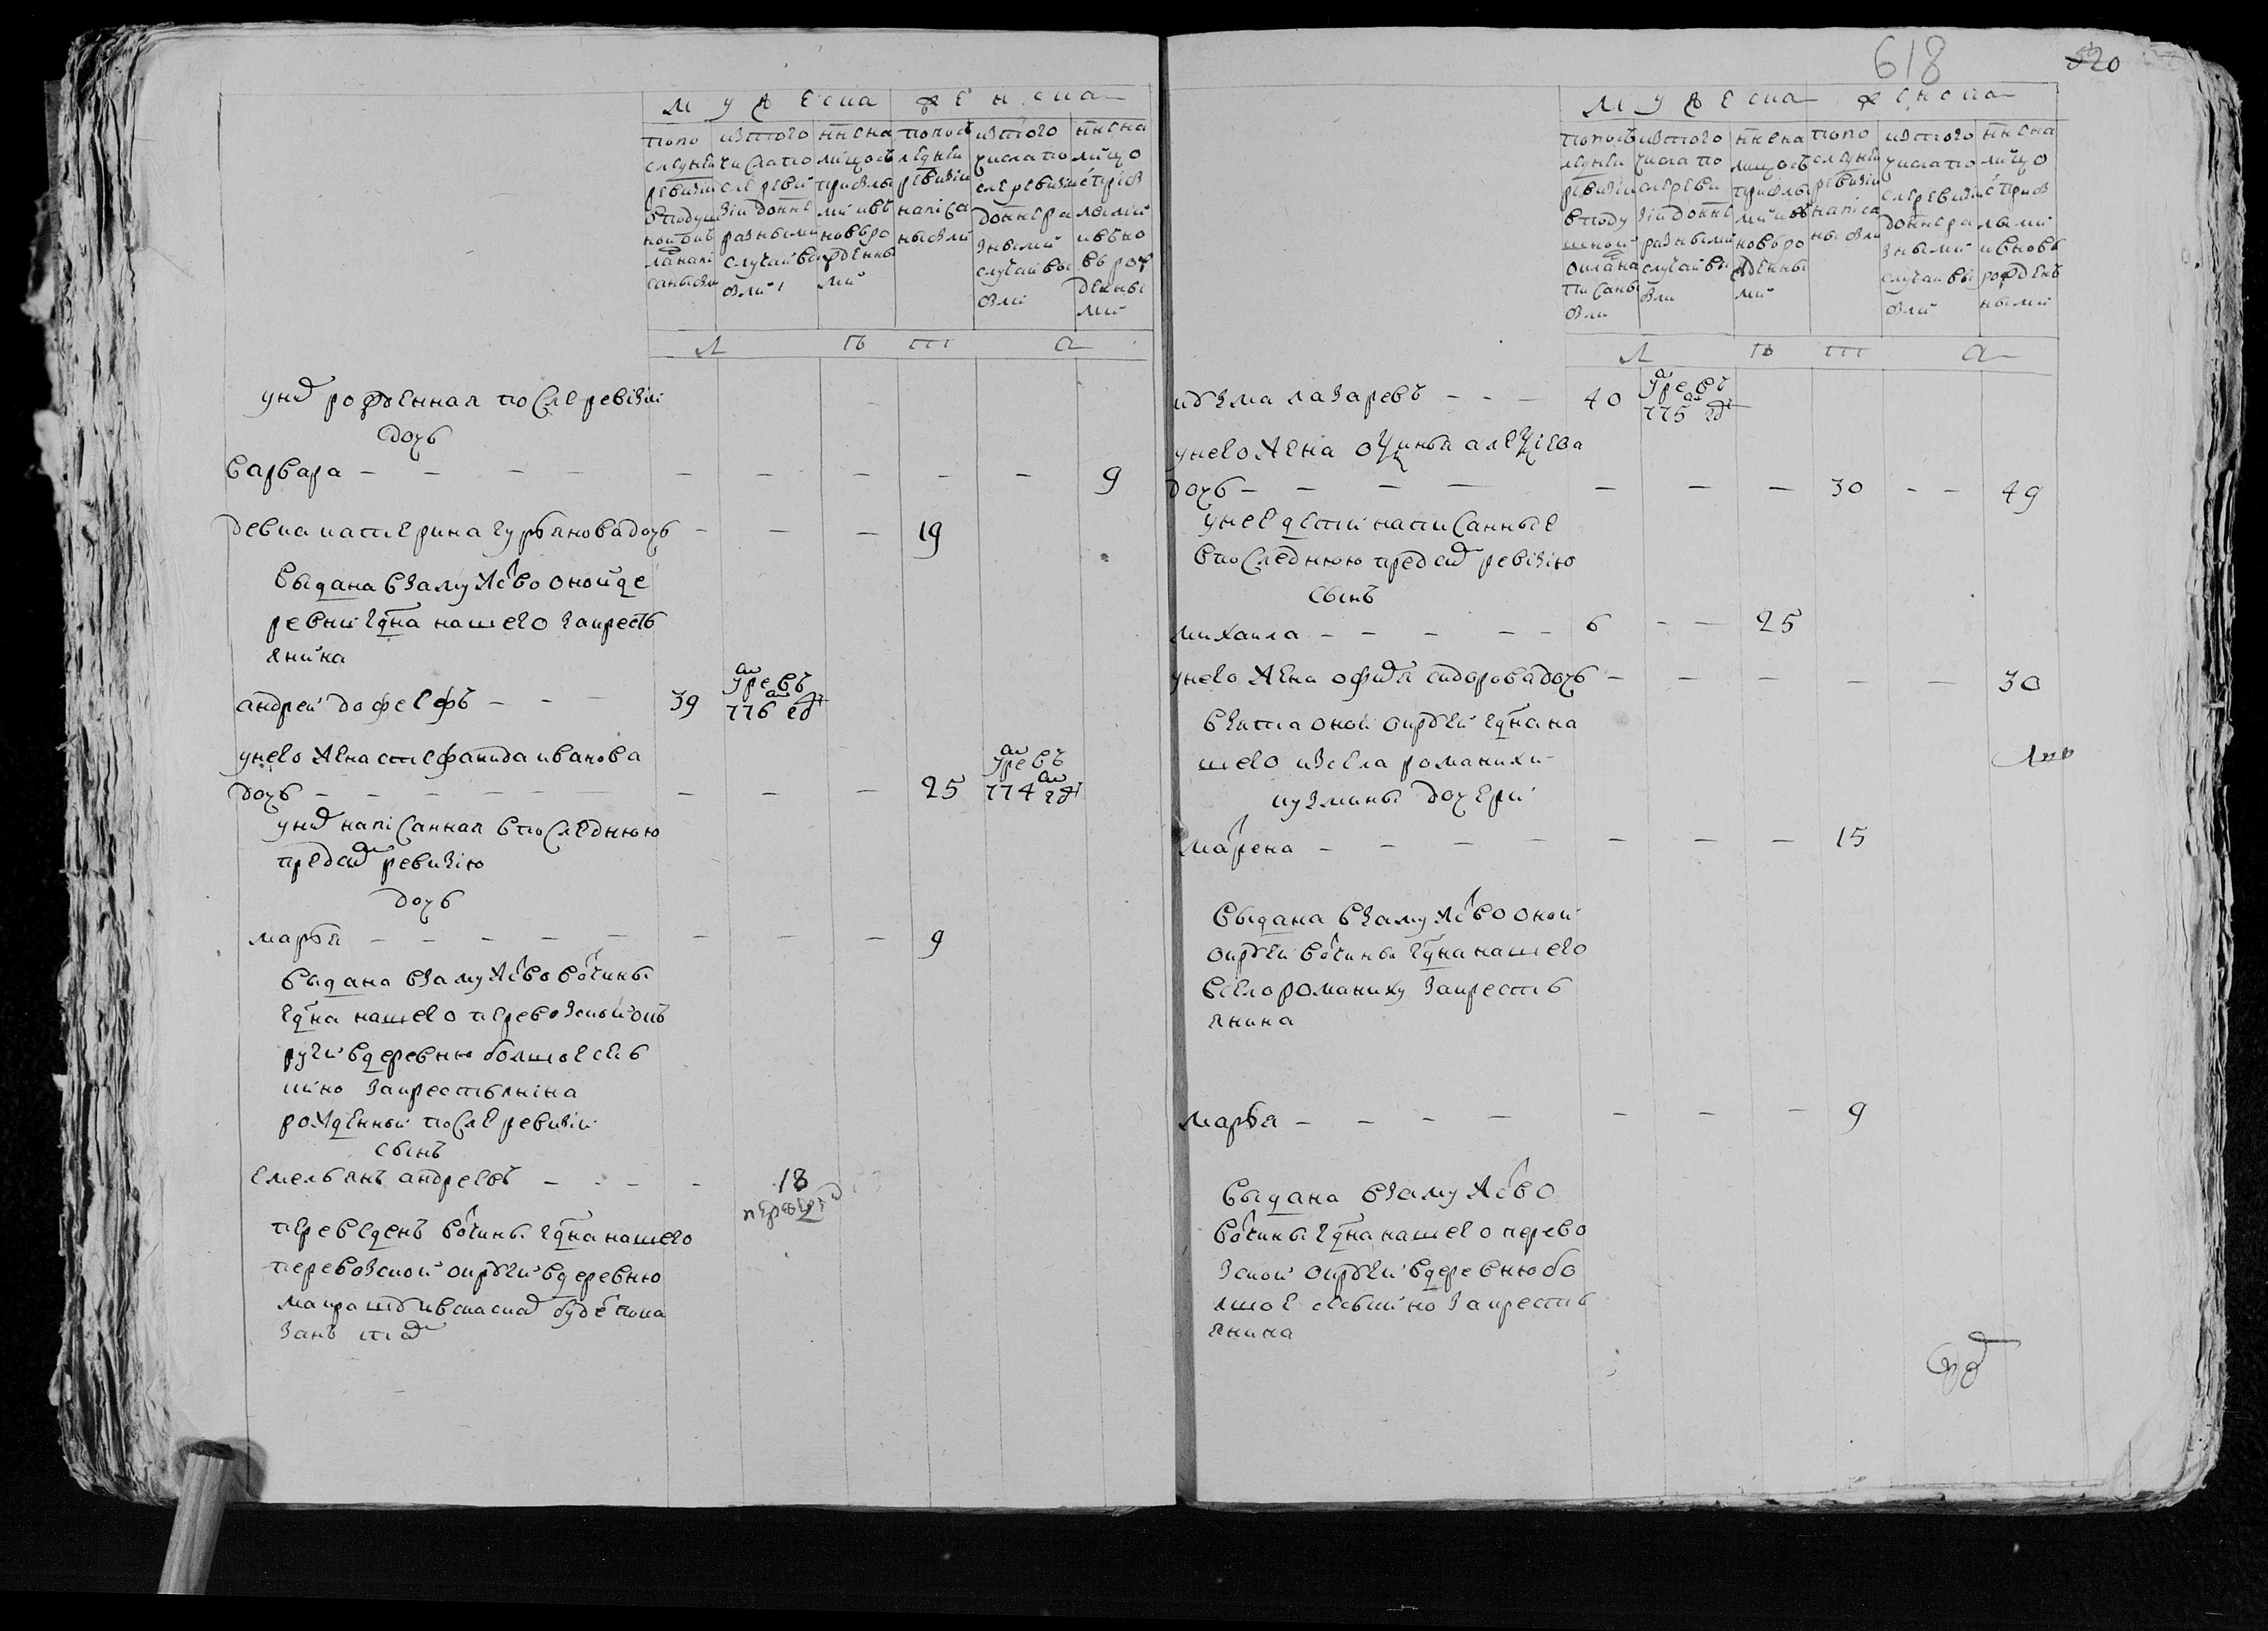 618
520
мужеска женска
попо
следней
ревизии
вподуш
ной бы
ла напи
саны были
изтого
числа по
сле реви
зии до нне
разными
случаи вы
были
ннена
лицо съ
прибылы
ми и въ
новь ро
жденны
ми
попось
ледней
ревизии
написа
ны были
изтого
числа по
сле ревизии
до нне ра
зными
случаи вы
были
ннена
лицо
с приб
лыми
и въно
вь рож
денны
ми
л ѣ т а
у ни рожденная после ревизии
дочь
варвара 9
девка катерина гурьянова дочь 19
выдана взамужсво оной де
ревни гдна нашего за крестъ
янина
андрей дофеефъ 39 умре въ
776 гд
у него жена стефанида иванова
дочь 25 умре въ
774 гд
у них написанная в последнюю
пред сим ревизию
дочь
марья 9
выдана взамужсво вочины
гдна нашего перевозской окъ
руги в деревню болшое сев
кино за крестьянина
рожденный после ревизии
сынъ
емельянъ андреевъ 18
переведенъ вочины гдна нашего
перевозской округи в деревню
мокра и в сказка буде пока
занъ там
мужеска женска
попось
ледней
ревизии
в поду
шной
оклана
писаны
были
изтого
числа по
сле реви
зии до нне
разными
случаи вы
были
ннена
лицо съ
прибылы
ми и въ
новь ро
жденны
ми
попо
следней
ревизии
написа
ны были
изтого
числа по
сле ревизии
до нне ра
зными
случаи вы
были
ннена
лицо
с приб
лыми
и вновь
рожденъ
ными
л ѣ т а
кузма лазаревъ 40 умре въ
775 гд
у него жена алексеева
дочь 30 49
у нее дети написанные
в последнюю пред сим ревизию
сынъ
михаила 6 25
у него жена офимя сидорова дочь 30
взята оной округи гдна на
шего из села романихи
кузмины дочери
марена 15
выдана взамужсво оной
округи вочины гдна нашего
в село романиху за крестъ
янина
марья 9
выдана взамужсво
вочины гдна нашего перево
зской округи в деревню бо
лшое севкино за крестъ
янина